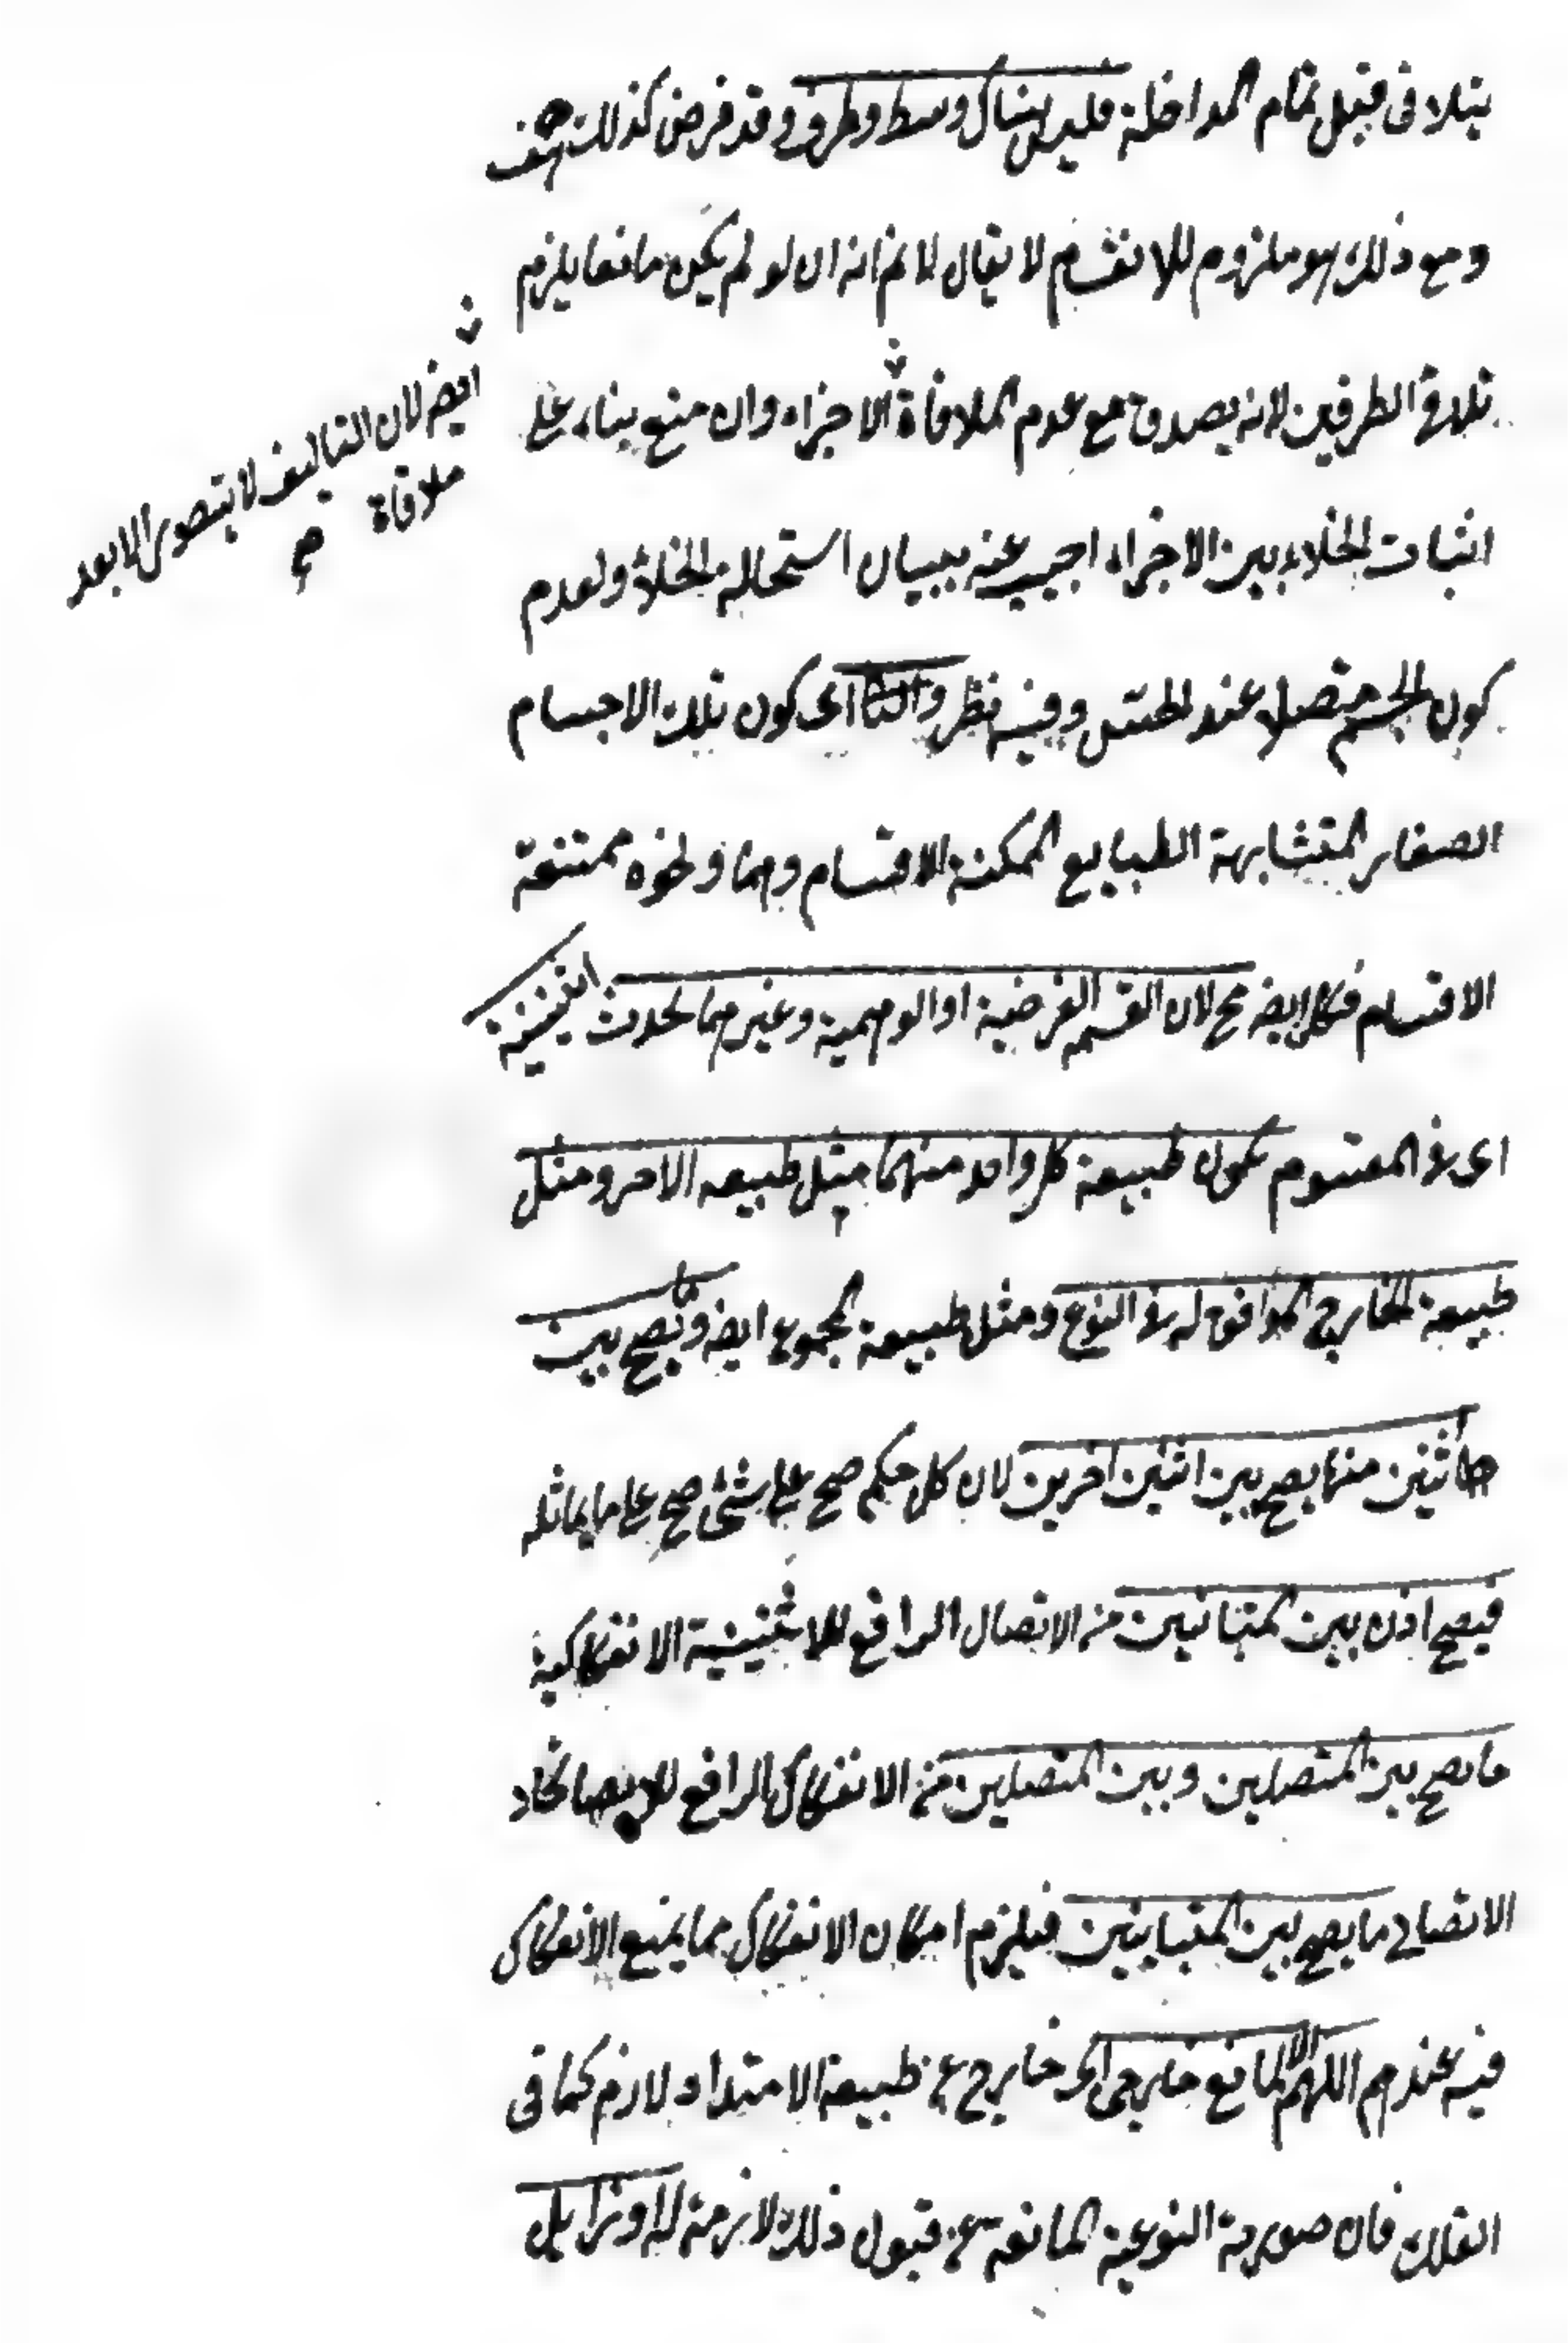 يتلاقى قبل تمام المداخلة فليس هناك وسط وطرف وقد فرض كذلك هف
ومع ذلك هو ملزوم للانقسام لا يقال لا نم انه ان لو لم يكن مانعا يلزم
تلاقى الطرفين لانه يصدق مع عدم الملاقاة الاجزاء وان منع بناء على
ايضا لان التاليف لا يتصور الا بعد
ملاقاة صح
اثبات الخلاء بين الاجزاء اجيب عنه ببيان استحالة الخلاء ولعدم
كون الجسم متصلا عند الحس وفيه نظر والثا اى كون تلك الاجسام
الصغار المتشابهة الطبايع الممكنة الاقسام وهما ونحوه ممتنعة
الاقسام فكل ايضا مح لان القسمة الفرضية او الوهمية وغيرهما تحدث اثنينية
اى فى المقسوم يكون طبيعة كل واحد منهما مثل طبيعة الاخر ومثل
طبيعة الخارج الموافق له فى النوع ومثل طبيعة المجموع ايضا وما يصح بين
اثنين منها يصح بين اثنين اخرين لان كل حكم صح على شئ صح على ما يماثله
فيصح اذن بين المتباينين من الاتصال الرافع للاثنينية الانفكاكية
ما يصح بين المتصلين وبين المتصلين من الانفكاك الرافع للاتحاد
الاتصالى ما يصح بين المتباينين فيلزم امكان الانفكاك مما يمنع الانفكاك
فيه عندهم اللهم الا لمانع خارجى اى خارج عن طبيعة الامتداد لازم كما فى
الفلك فان صورته النوعية المانعه عن قبول ذلك لازمة له او زايل